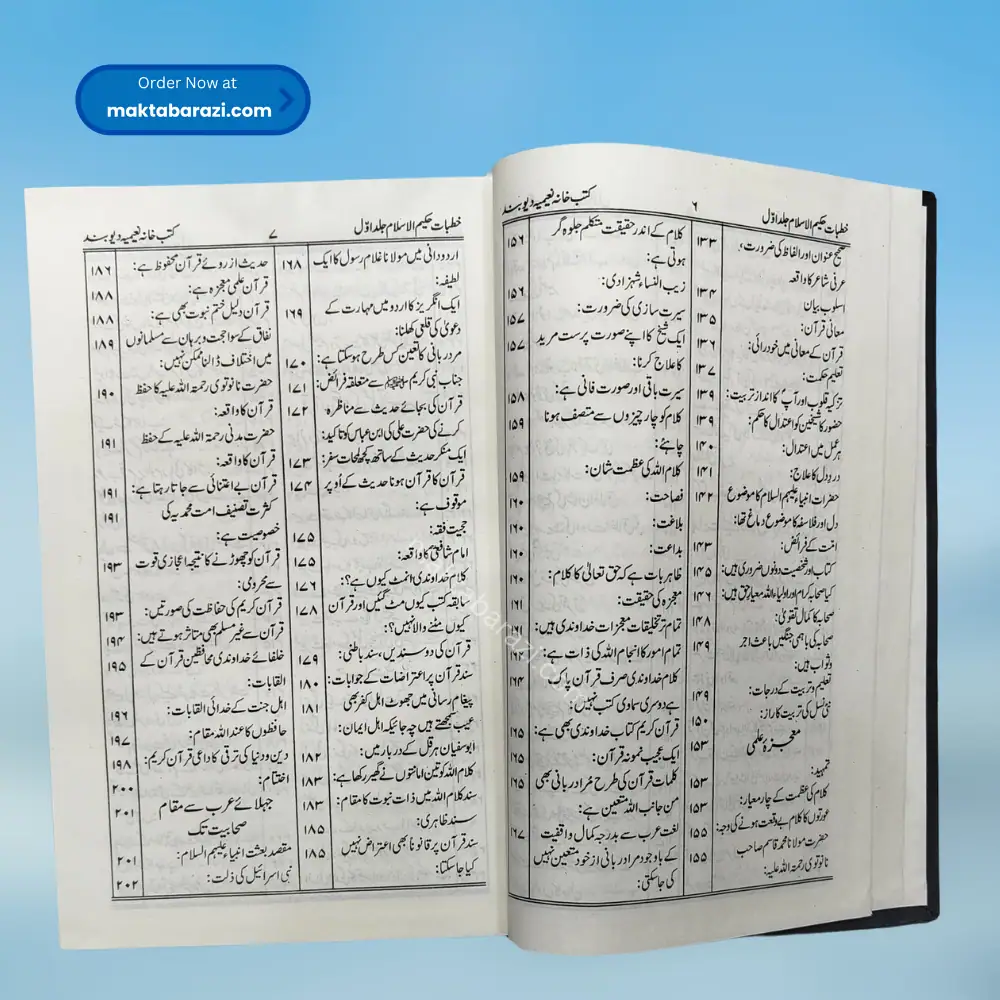 Order Now at
maktabarazi.com
خطبات حکیم الاسلام جلد اوّل
۶
کتب خانہ نعیمیہ دیوبند
صحیح عنوان اور الفاظ کی ضرورت؛ ۱۳۳
عربی شاعر کا واقعہ ۱۳۴
اسلوب بیان ۱۳۵
معانی قرآن:
قرآن کے معانی میں خودرائی: ۱۳۶
تعلیم حکمت: ۱۳۷
تزکیہ قلوب اور آپ کا انداز تربیت: ۱۳۹
حضور کا شیخین کو اعتدال کا حکم: ۱۳۹
ہر عمل میں اعتدال: ۱۴۰
درد دل کا علاج: ۱۴۱
حضرات انبیاء علیہم السلام کا موضوع ۱۴۲
دل اور فلاسفہ کا موضوع دماغ تھا:
امت کے فرائض: ۱۴۳
کتاب اور شخصیت دونوں ضروری ہیں: ۱۴۵
کیا صحابہ کرام اور اولیاء اللہ معیار حق ہیں: ۱۴۶
صحابہ کا کمال تقویٰ: ۱۴۸
صحابہ کی باہمی جنگیں باعث اجر ۱۴۹
وثواب ہیں:
تعلیم و تربیت کے درجات: ۱۴۹
نئی نسل کی تربیت کا راز: ۱۵۰
معجزہ علمی ۱۵۳
تمہید: ۱۵۳
کلام کی عظمت کے چار معیار: ۱۵۳
عورتوں کا کلام بے وقعت ہونے کی وجہ: ۱۵۵
حضرت مولانا محمد قاسم صاحب ۱۵۵
نانوتوی رحمۃ اللہ علیہ:
کلام کے اندر حقیقت متکلم جلوہ گر ۱۵۶
ہوتی ہے:
زیب النساء شہزادی: ۱۵۶
سیرت سازی کی ضرورت: ۱۵۷
ایک شیخ کا اپنے صورت پرست مرید ۱۵۷
کا علاج کرنا:
سیرت باقی اور صورت فانی ہے: ۱۵۸
کلام کو چار چیزوں سے متصف ہونا ۱۵۹
چاہئے:
کلام اللہ کی عظمت شان: ۱۵۹
فصاحت: ۱۶۰
بلاغت: ۱۶۰
بداعت: ۱۶۰
ظاہر بات ہے کہ حق تعالیٰ کا کلام: ۱۶۰
معجزہ کی حقیقت: ۱۶۱
تمام تر تخلیقات معجزات خداوندی ہیں: ۱۶۱
تمام امور کا انجام اللہ کی ذات ہے: ۱۶۴
کلام خداوندی صرف قرآن پاک ۱۶۴
ہے دوسری سماوی کتب نہیں:
قرآن کریم کتاب خداوندی بھی ہے: ۱۶۵
ایک عجیب نمونہ قرآن: ۱۶۵
کلمات قرآن کی طرح مراد ربانی بھی ۱۶۵
من جانب اللہ متعین ہے:
لغت عرب سے بدرجہ کمال واقفیت ۱۶۷
کے باوجود مراد ربانی از خود متعین نہیں
کی جاسکتی:
خطبات حکیم الاسلام جلد اوّل
۷
کتب خانہ نعیمیہ دیوبند
اردو دانی میں مولانا غلام رسول کا ایک ۱۶۸
لطیفہ:
ایک انگریز کا اردو میں مہارت کے ۱۶۹
دعویٰ کی قلعی کھلنا:
مرد ربانی کا تعین کس طرح ہوسکتا ہے: ۱۷۰
جناب نبی کریم ﷺ سے متعلقہ فرائض: ۱۷۱
قرآن کی بجائے حدیث سے مناظرہ ۱۷۲
کرنے کی حضرت علی کی ابن عباس کو تاکید:
ایک منکر حدیث کے ساتھ کچھ لمحات سفر: ۱۷۳
قرآن کا قرآن ہونا حدیث کے اوپر ۱۷۴
موقوف ہے:
حجیت فقہ: ۱۷۵
امام شافعیؒ کا واقعہ: ۱۷۵
کلام خداوندی انمٹ کیوں ہے؟: ۱۷۶
سابقہ کتب کیوں مٹ گئیں اور قرآن ۱۷۸
کیوں مٹنے والا نہیں؟:
قرآن کی دو سندیں، سند باطنی: ۱۷۹
سند قرآن پر اعتراضات کے جوابات: ۱۸۰
پیغام رسانی میں جھوٹ اہل کفر بھی ۱۸۱
عیب سمجھتے ہیں چہ جائیکہ اہل ایمان:
ابوسفیان ہرقل کے دربار میں: ۱۸۲
کلام اللہ کو تین امانتوں نے گھیر رکھا ہے: ۱۸۳
سند کلام اللہ میں ذات نبوت کا مقام: ۱۸۳
سند ظاہری: ۱۸۵
سند قرآن پر قانوناً بھی اعتراض نہیں ۱۸۵
کیا جاسکتا:
حدیث از روئے قرآن محفوظ ہے: ۱۸۶
قرآن علمی معجزہ ہے: ۱۸۸
قرآن دلیل ختم نبوت بھی ہے: ۱۸۸
نفاق کے سوا حجت و برہان سے مسلمانوں ۱۸۹
میں اختلاف ڈالنا ممکن نہیں:
حضرت نانوتوی رحمۃ اللہ علیہ کا حفظ ۱۹۰
قرآن کا واقعہ:
حضرت مدنی رحمۃ اللہ علیہ کے حفظ ۱۹۱
قرآن کا واقعہ:
قرآن بے اعتنائی سے جاتا رہتا ہے: ۱۹۱
کثرت تصنیف امت محمدیہ کی ۱۹۱
خصوصیت ہے:
قرآن کو چھوڑنے کا نتیجہ اعجازی قوت ۱۹۳
سے محرومی:
قرآن کریم کی حفاظت کی صورتیں: ۱۹۳
قرآن سے غیر مسلم بھی متاثر ہوتے ہیں: ۱۹۴
خلفائے خداوندی محافظین قرآن کے ۱۹۵
القابات:
اہل جنت کے خدائی القابات: ۱۹۶
حافظوں کا عند اللہ مقام: ۱۹۷
دین و دنیا کی ترقی کا داعی قرآن کریم: ۱۹۸
اختتام: ۲۰۰
جہلائے عرب سے مقام ۲۰۱
صحابیت تک
مقصد بعثت انبیاء علیہم السلام: ۲۰۱
نبی اسرائیل کی ذلت: ۲۰۲